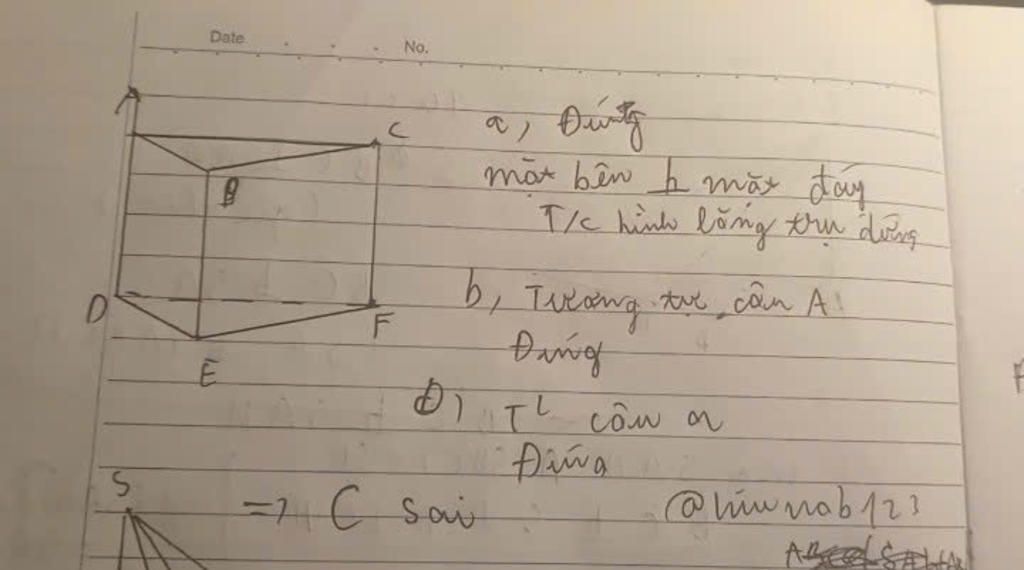 Date No.
A
C
B
D
E
F
a, Đúng
mặt bên h mặt đáy
T/c hình lăng trụ đứng
b, Tương tự câu A
Đúng
D) T² câu a
Đúng
S
=> C sai
@hiuunab123